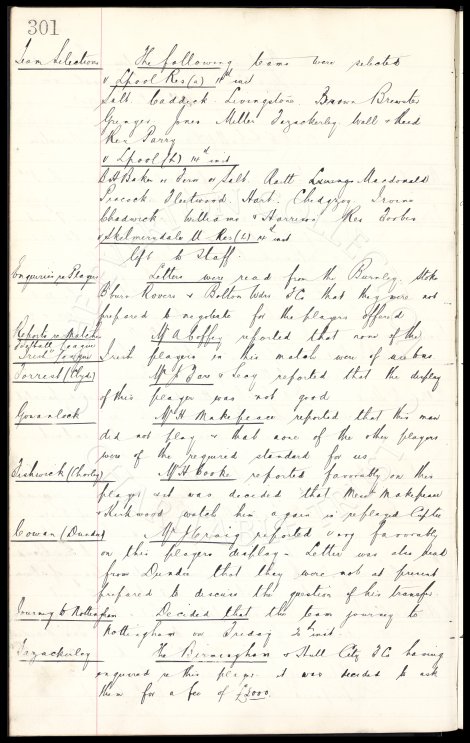 301
Team Selections The following teams were selected
v Lpool Res (a) 14th inst
Salt. Caddick. Livingstone. Brown Brewster
Grenyer Jones Miller Fazackerley Wall & Reed
Res Parry
v Lpool (h) 14th inst
Fern or Salt Raitt Macdonald
Peacock Fleetwood Hart. Chedgzoy Irvine
Chadwick Williams & Harrison Res Forbes
v Skelmersdale U Res (h) 14th inst
left to Staff.
Enquiries re Players Letters were read from the Burnley, Stoke
B'burn Rovers & Bolton Wdrs FC that they were not
prepared to negotiate for the players offered
Reports re Matches Mr A Coffey reported that none of the
Football League
Irish League Irish players in this match were of use to us.
Forrest (Clyde) Mr & reported that the display
of this player was not good
Gowanlock Mr H Makepeace reported that this man
did not play & that none of the other players
were of the required standard for us.
Fishwick (Chorley) Mr H Cooke reported favorably on this
player & it was decided that Messrs Makepeace
& Kirkwood watch him again in replayed Cup tie
Cowan (Dundee) Mr J Craig reported very favorably
on this players display - Letter was also read
from Dundee that they were not at present
prepared to discuss the question of his transfer.
Journey to Nottingham Decided that the team journey to
Nottingham on Friday inst.
Fazackerley The Birmingham & Hull City FC having
enquired re this player it was decided to ask
them for a fee of